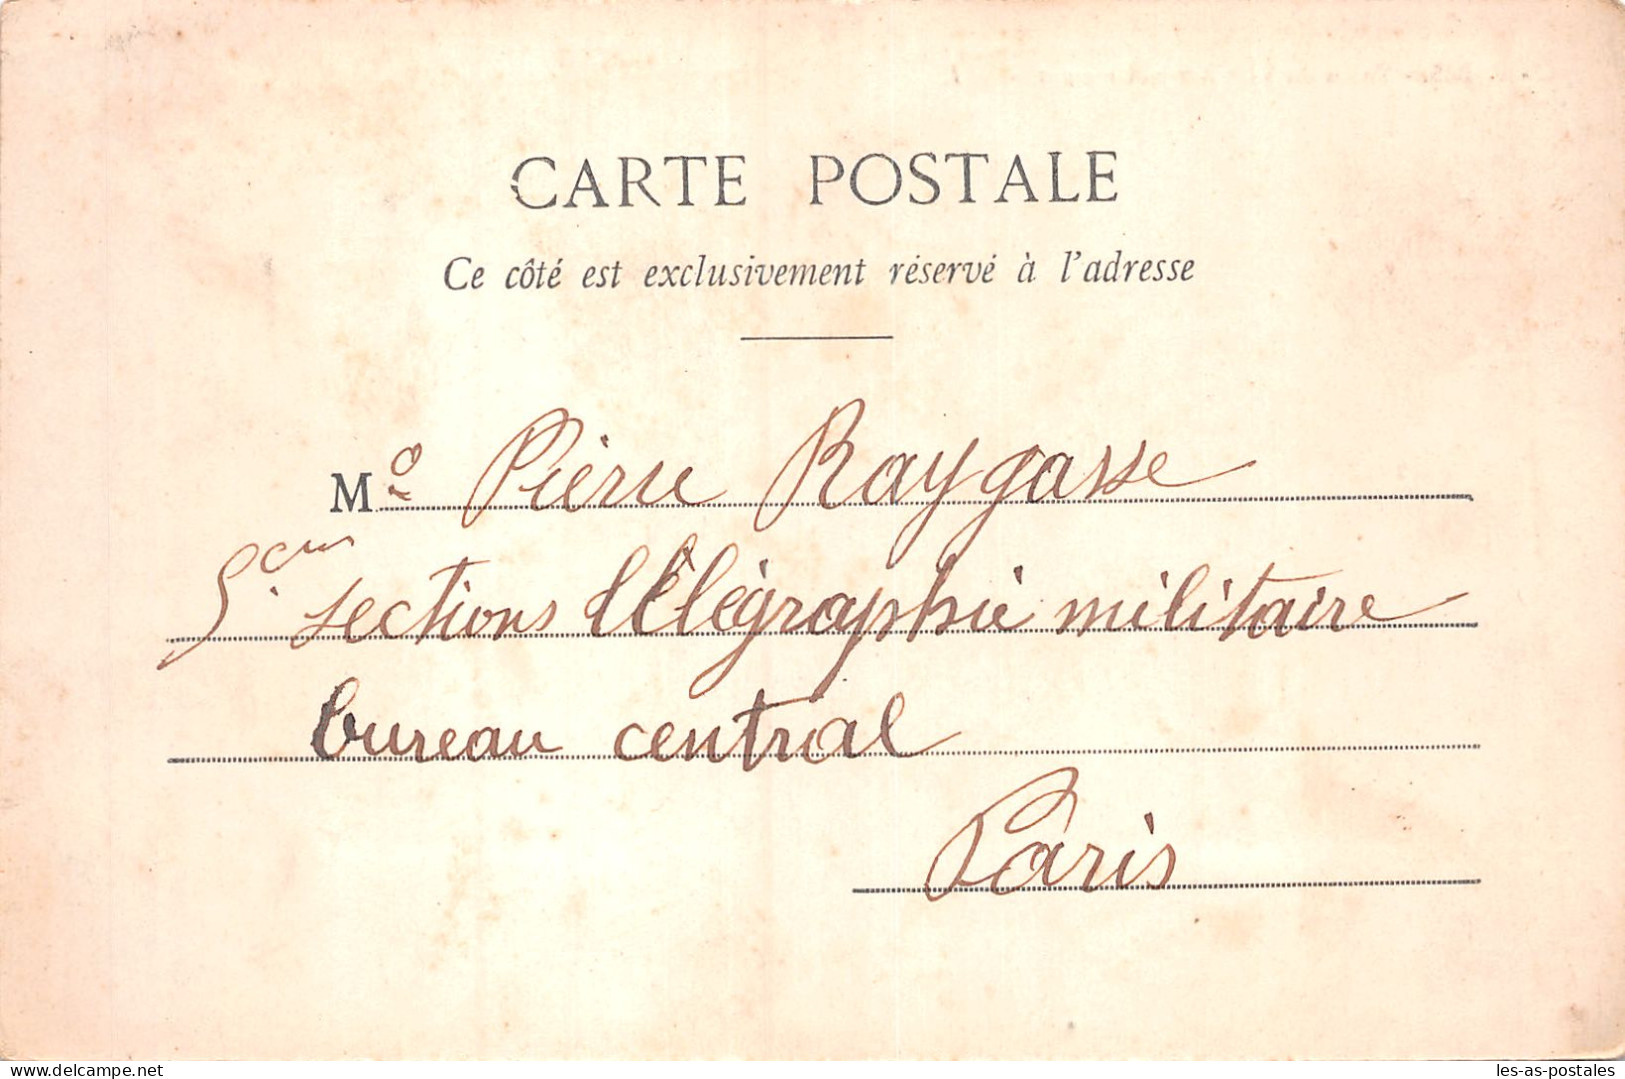 CARTE POSTALE
Ce côté est exclusivement réservé à l'adresse
M. Pierre Raygasse
5eme sections télégraphie militaire
bureau central
Paris
www.delcampe.net
les-as-postales